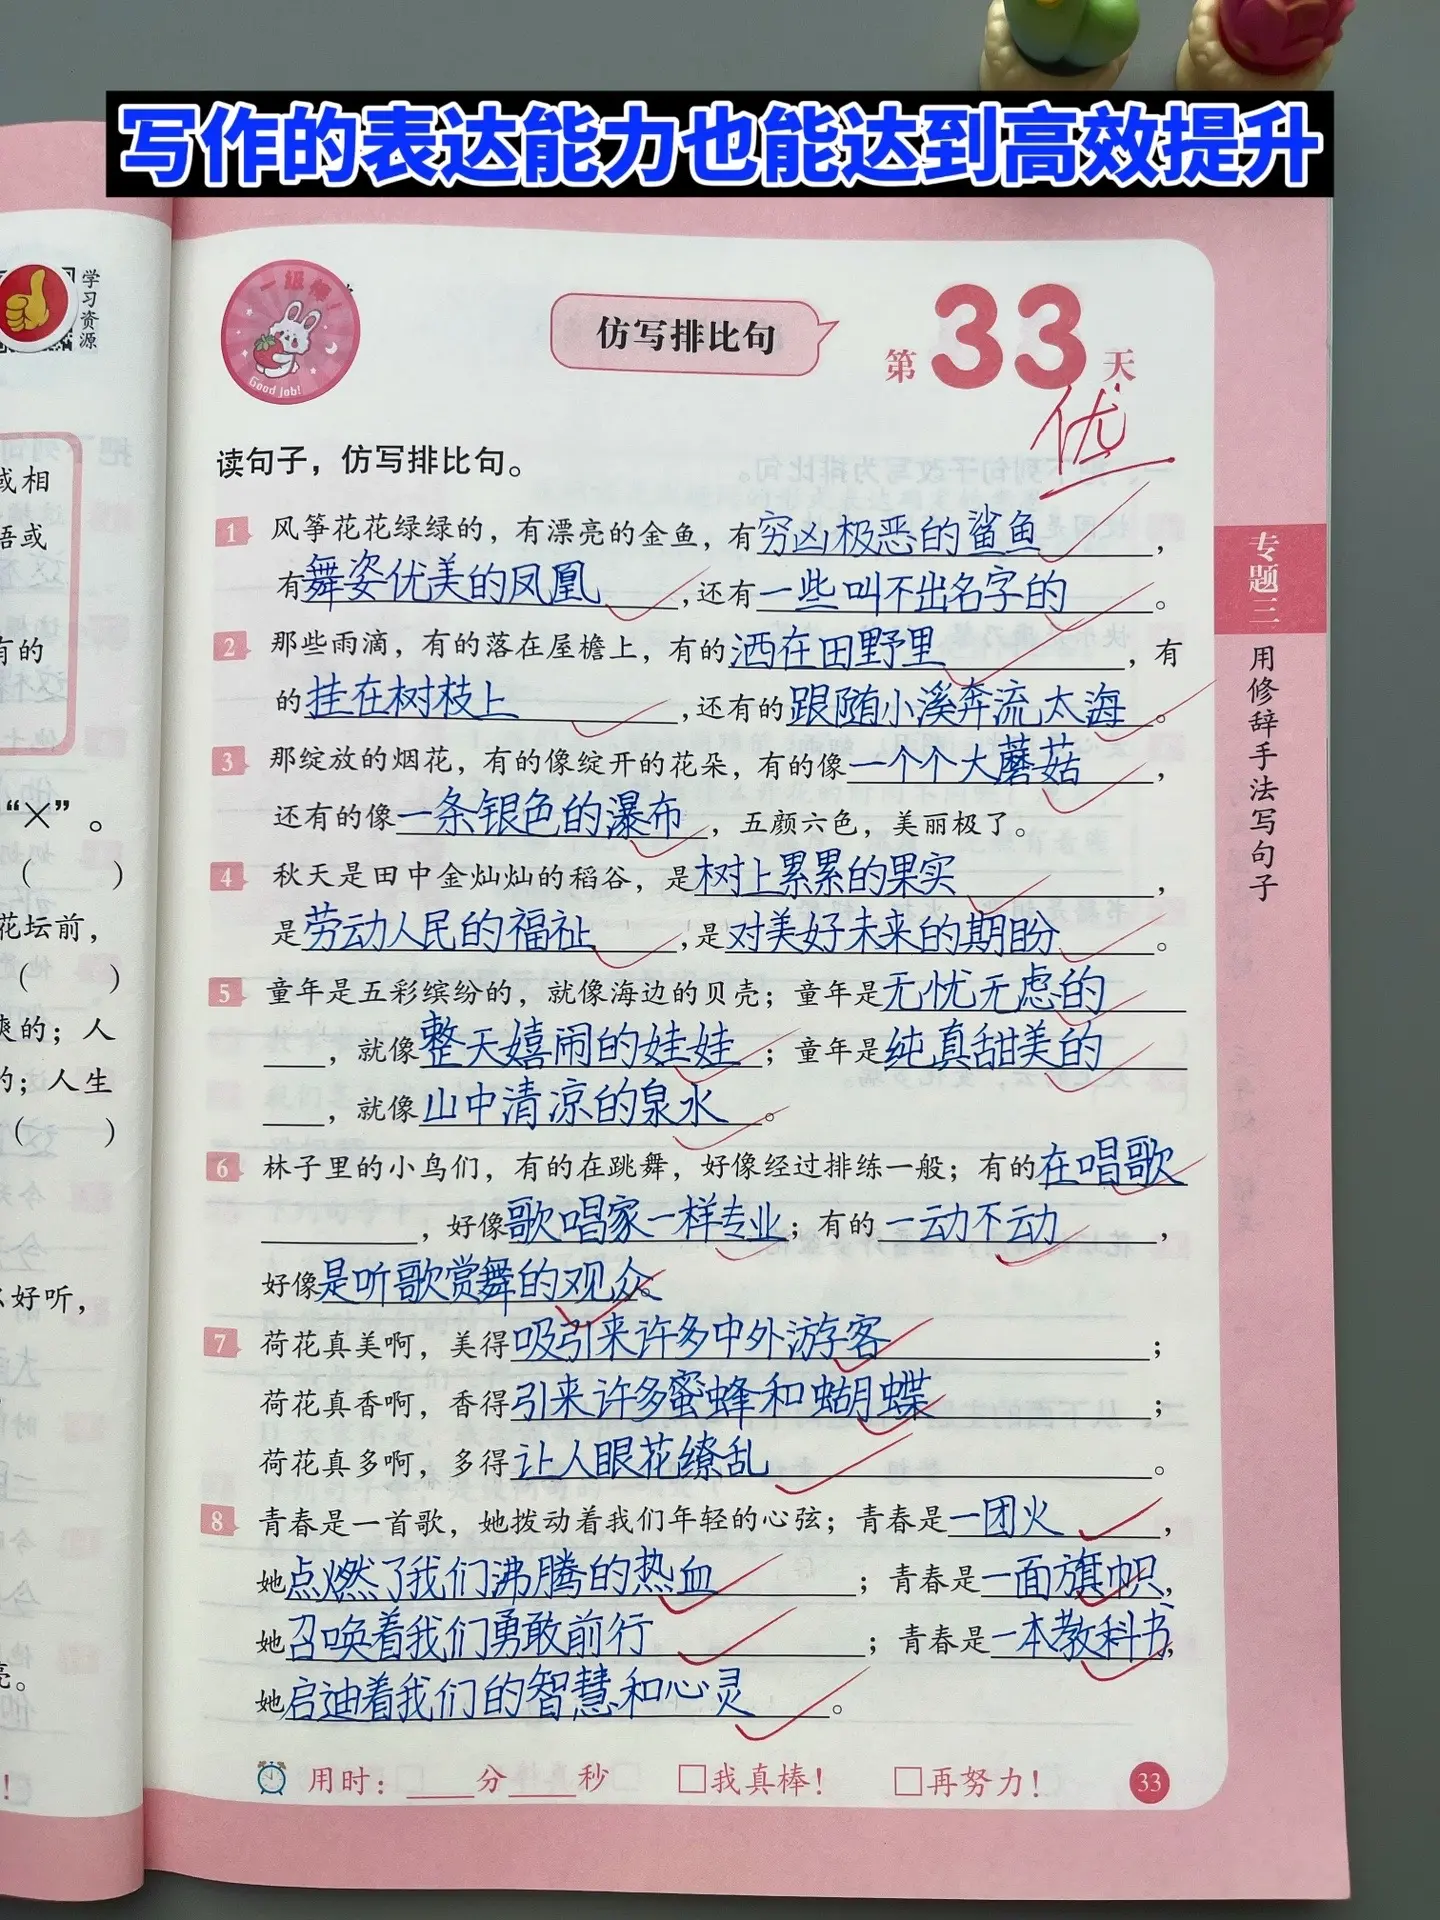 写作的表达能力也能达到高效提升
学习资源
一级棒!
Good job!
仿写排比句
第33天
优
读句子，仿写排比句。
1 风筝花花绿绿的，有漂亮的金鱼，有穷凶极恶的鲨鱼，
有舞姿优美的凤凰，还有一些叫不出名字的。
2 那些雨滴，有的落在屋檐上，有的洒在田野里，有
的挂在树枝上，还有的跟随小溪奔流大海。
3 那绽放的烟花，有的像绽开的花朵，有的像一个个大蘑菇，
还有的像一条银色的瀑布，五颜六色，美丽极了。
4 秋天是田中金灿灿的稻谷，是树上累累的果实，
是劳动人民的福祉，是对美好未来的期盼。
5 童年是五彩缤纷的，就像海边的贝壳；童年是无忧无虑的
，就像整天嬉闹的娃娃；童年是纯真甜美的
，就像山中清凉的泉水。
6 林子里的小鸟们，有的在跳舞，好像经过排练一般；有的在唱歌
，好像歌唱家一样专业；有的一动不动，
好像是听歌赏舞的观众。
7 荷花真美啊，美得吸引来许多中外游客；
荷花真香啊，香得引来许多蜜蜂和蝴蝶；
荷花真多啊，多得让人眼花缭乱。
8 青春是一首歌，她拨动着我们年轻的心弦；青春是一团火，
她点燃了我们沸腾的热血；青春是一面旗帜，
她召唤着我们勇敢前行；青春是一本教科书，
她启迪着我们的智慧和心灵。
用时：分秒 □我真棒！ □再努力！
33
专题三 用修辞手法写句子
或相
语或
有的
“×”。
（ ）
花坛前，
（ ）
爽的；人
的；人生
（ ）
么好听，
亮。
！